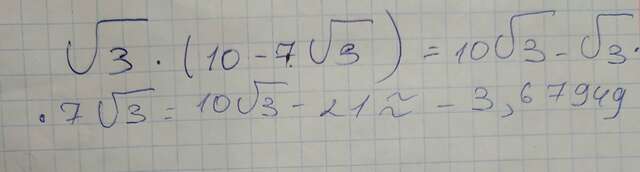 √3 · (10 - 7√3) = 10√3 - √3 ·
· 7√3 = 10√3 - 21 ≈ - 3,67949